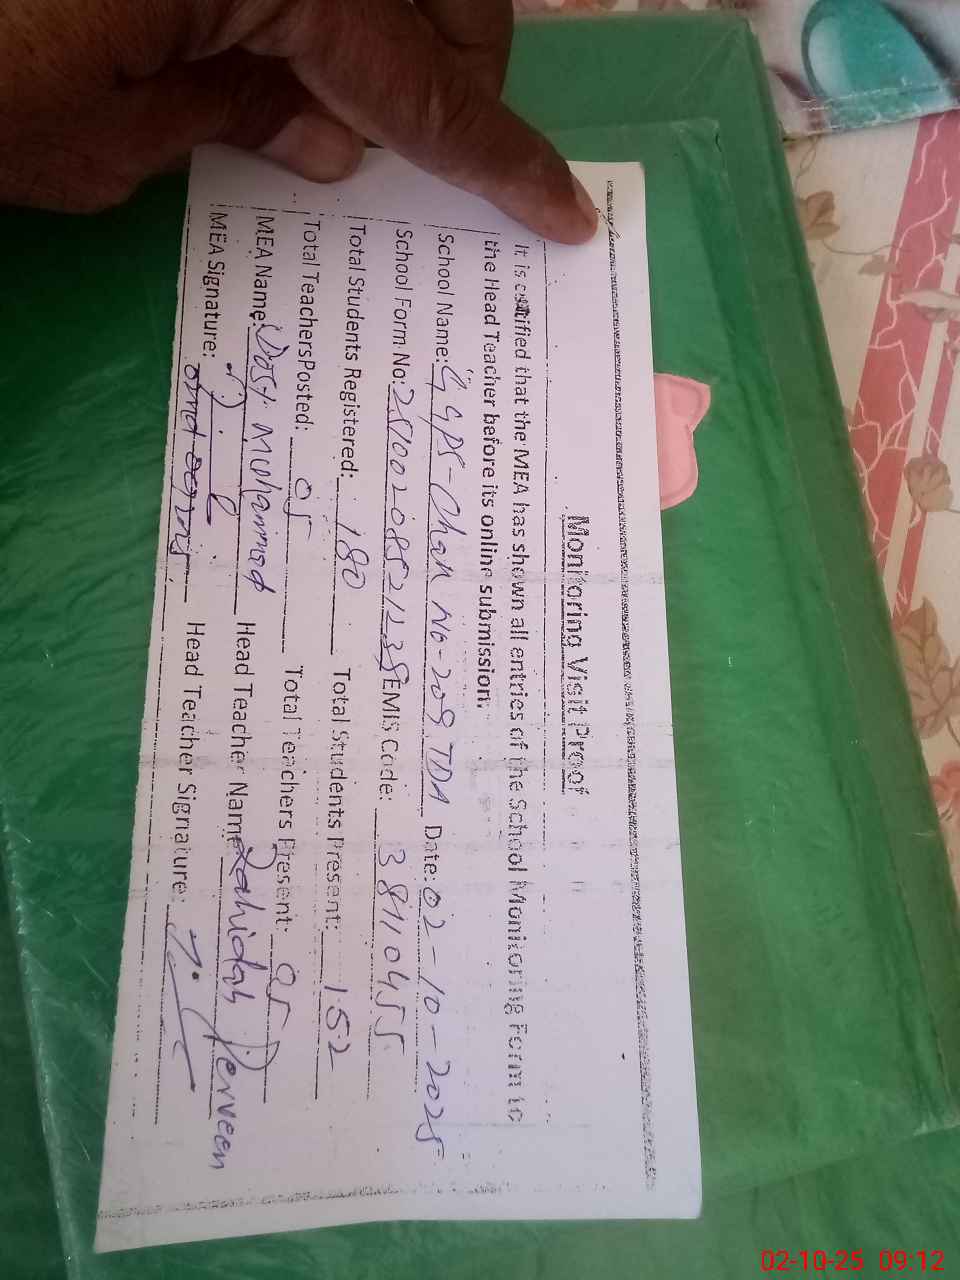 Monitoring Visit Proof
It is certified that the MEA has shown all entries of the School Monitoring Form to
the Head Teacher before its online submission.
School Name: GGPS-Chak No-209 TDA Date: 02-10-2025
School Form No: EMIS Code: 38110455
Total Students Registered: 180 Total Students Present: 152
Total TeachersPosted: 05 Total Teachers Present: 05
MEA Name: Dost Mohammad Head Teacher Name Zahidah Perveen
MEA Signature: Head Teacher Signature:
02-10-25 09:12